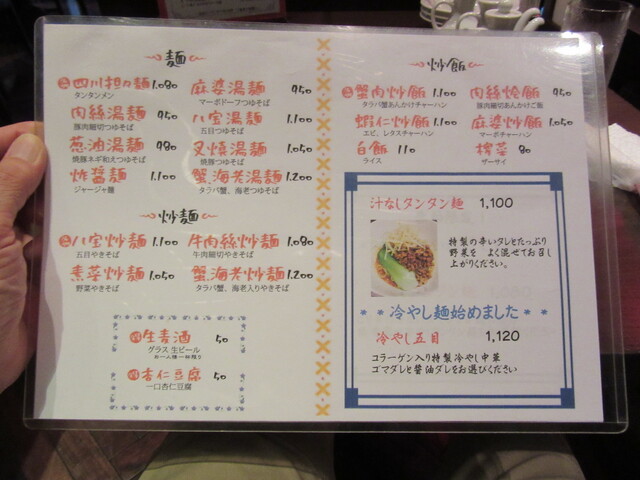 麺
四川担々麺 1.080
タンタンメン
肉絲湯麺 950
豚肉細切つゆそば
葱油湯麺 980
焼豚ネギ和えつゆそば
炸醤麺 1.100
ジャージャ麺
麻婆湯麺 950
マーボドーフつゆそば
八宝湯麺 1.100
五目つゆそば
叉焼湯麺 1.050
焼豚つゆそば
蟹海老湯麺 1.200
タラバ蟹、海老つゆそば
炒麺
八宝炒麺 1.100
五目やきそば
素菜炒麺 1.050
野菜やきそば
牛肉絲炒麺 1.080
牛肉細切やきそば
蟹海老炒麺 1.200
タラバ蟹、海老入りやきそば
生麦酒 50
グラス 生ビール
お一人様一杯限り
杏仁豆腐 50
一口杏仁豆腐
炒飯
蟹肉炒飯 1.100
タラバ蟹あんかけチャーハン
蝦仁炒飯 1.100
エビ、レタスチャーハン
白飯 110
ライス
肉絲燴飯 950
豚肉細切あんかけご飯
麻婆炒飯 1.050
マーボチャーハン
搾菜 80
ザーサイ
汁なしタンタン麺 1,100
特製の辛いダレとたっぷり
野菜を よく混ぜてお召し
上がりください。
冷やし麺始めました
冷やし五目 1,120
コラーゲン入り特製冷やし中華
ゴマダレと醤油ダレをお選びください